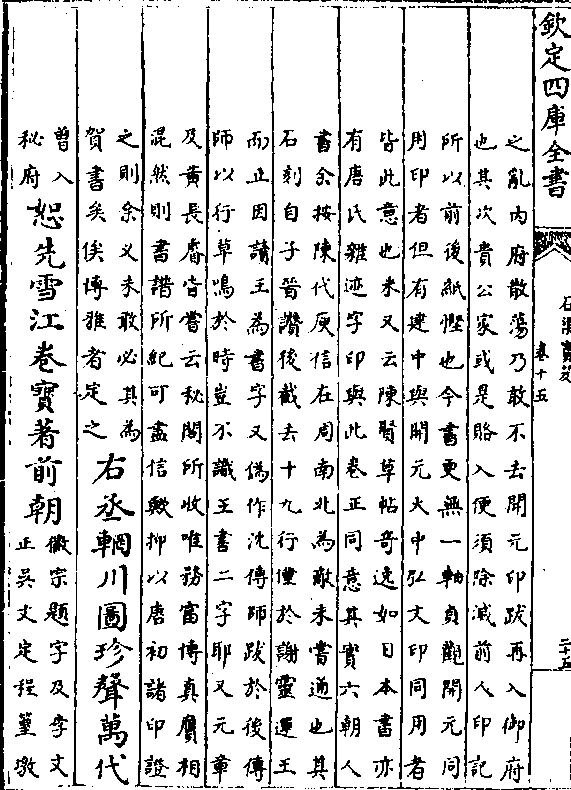 欽定四庫全書
石渠寶笈
卷十五
之亂内府散蕩乃敢不去開元印跋再入御府
也其次貴公家或是賂入便須除減前人印記
所以前後紙慳也今書更無一軸貞觀開元同
用印者但有建中與開元大中弘文印同用者
皆此意也米又云陳賢草帖奇逸如日本書亦
有唐氏雜迹字印與此卷正同意其實六朝人
書余按陳代庾信在周南北為敵未書通也其
石刻自子晉讚後截去十九行僅於謝靈運王
而止因讀王為書字又偽作沈傳師跋於後傳
師以行草鳴於時豈不識王書二字耶又元章
及黄長睿皆嘗云秘閣所收唯務富博真贋相
混然則書譜所紀可盡信歟抑以唐初諸印證
之則余又未敢必其為
賀書矣俟博雅者定之
右丞輞川圖珍聲萬代
曾入
秘府
恕先雪江卷寶著前朝
徽宗題字及李文
正吳文定程篁墩